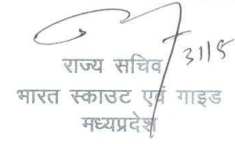 31/5
राज्य सचिव
भारत स्काउट एवं गाइड
मध्यप्रदेश